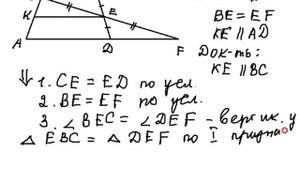 BE = EF
KE || AD
Док-ть:
KE || BC
K
E
A
D
F
1. CE = ED по усл.
2. BE = EF по усл.
3. ∠ BEC = ∠ DEF - вертик. у
△ EBC = △ DEF по I призна